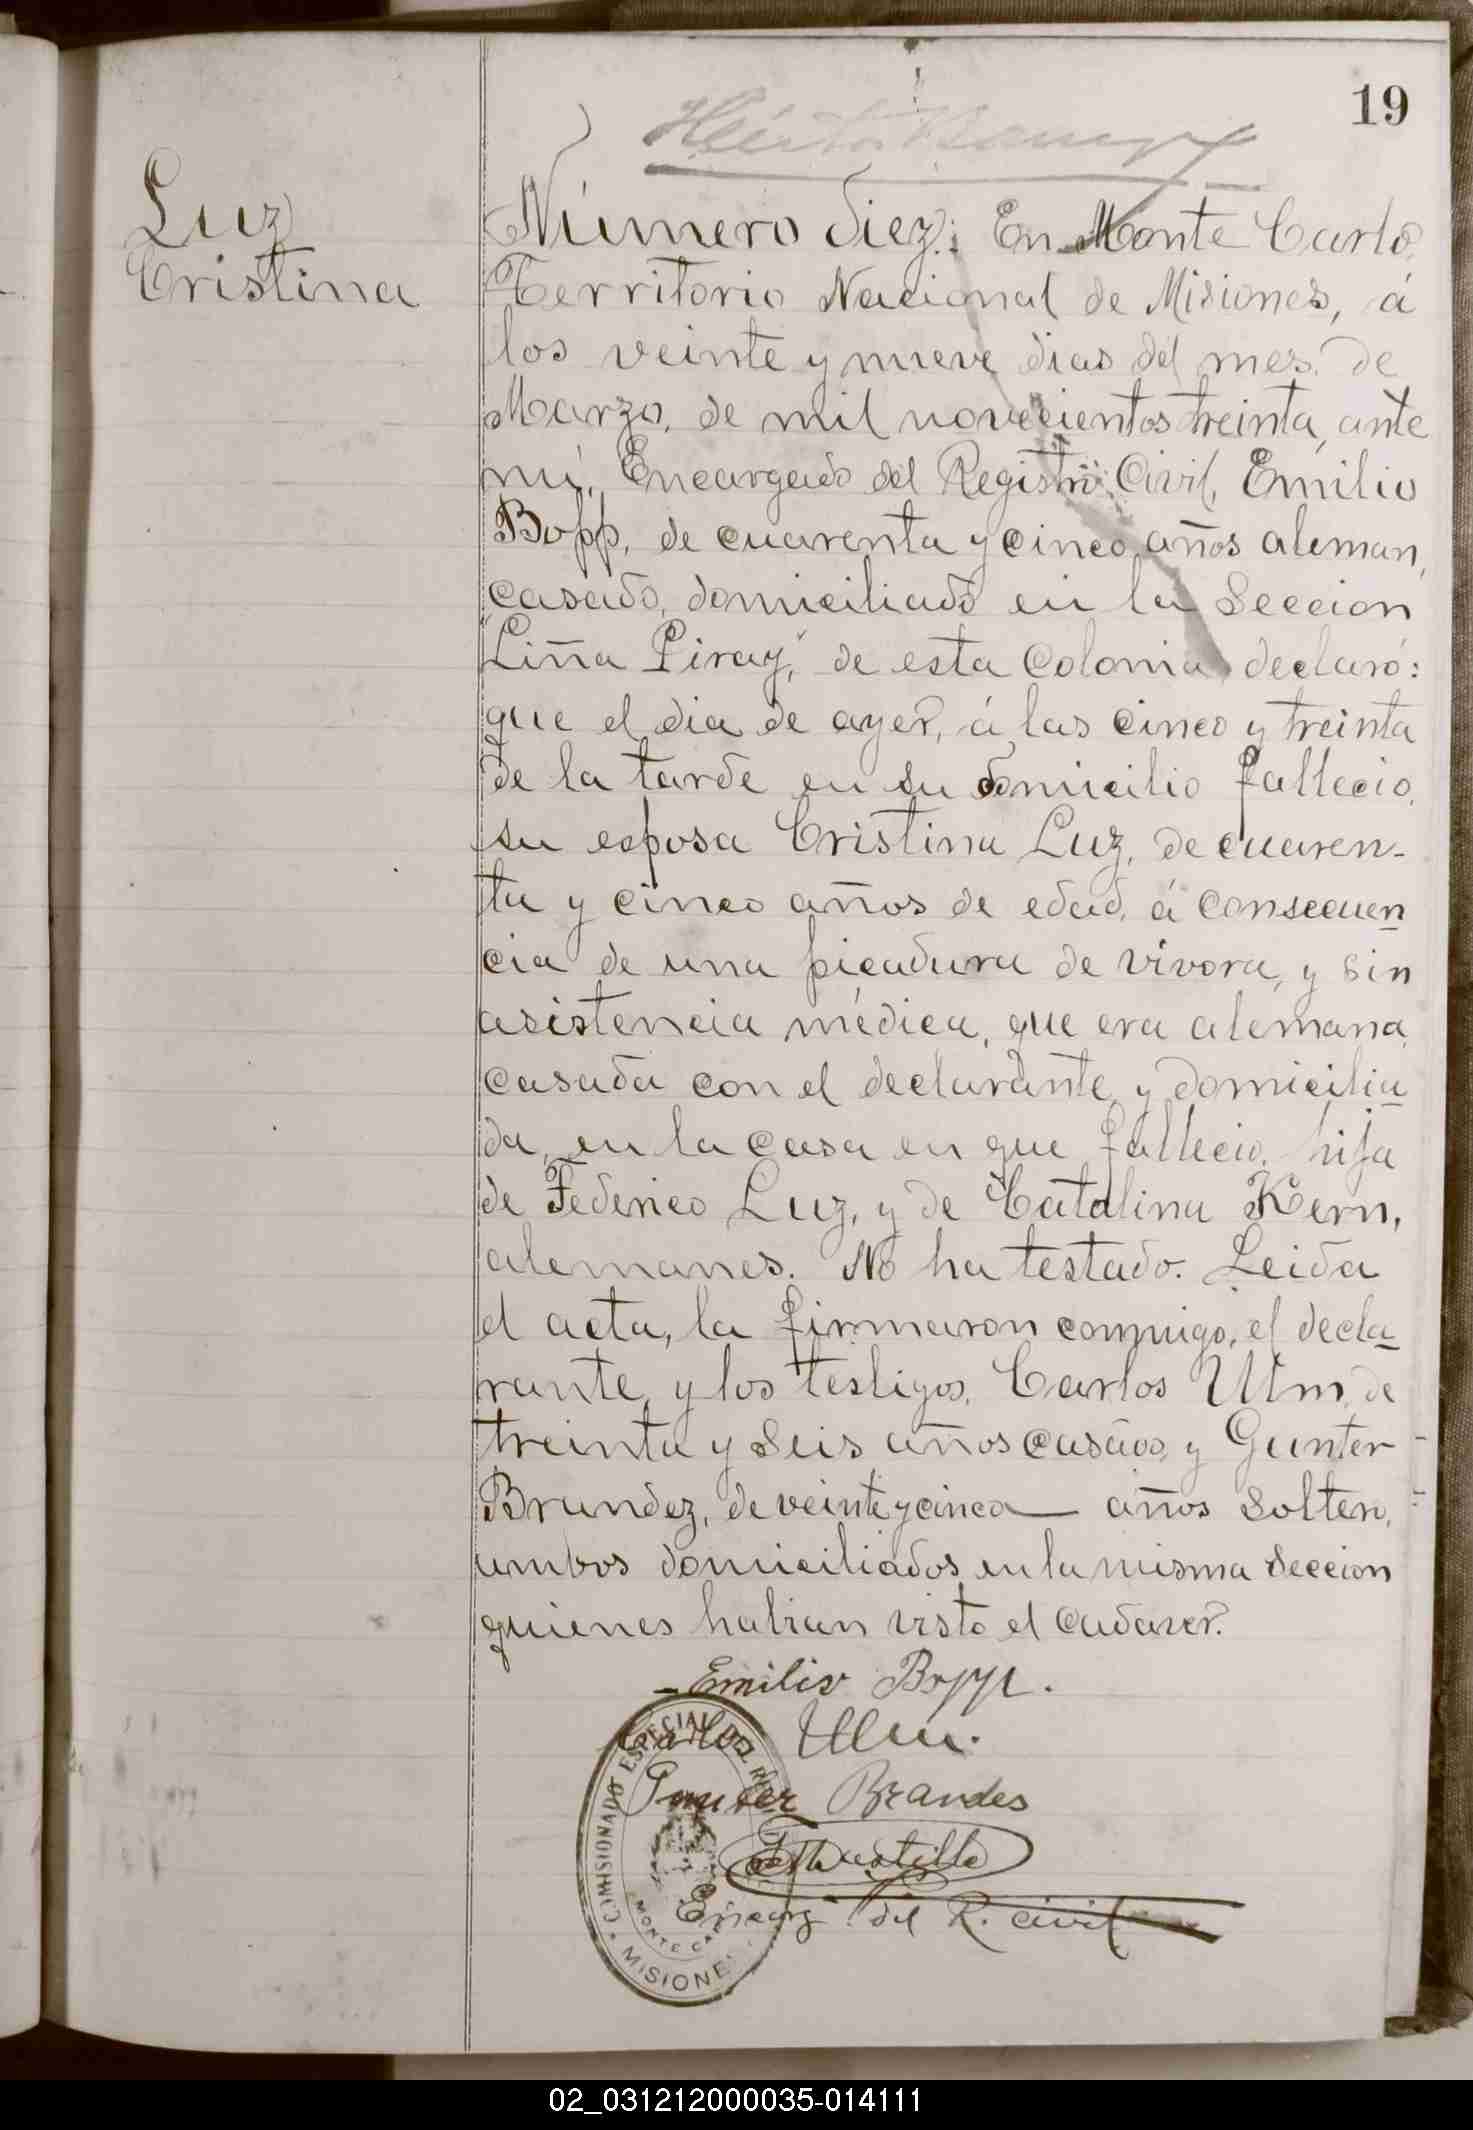 19
Luz
Cristina
Número diez: En Monte Carlo,
Territorio Nacional de Misiones, á
los veinte y nueve dias del mes de
Marzo, de mil novecientos treinta, ante
mi, Encargado del Registro Civil, Emilio
Bopp, de cuarenta y cinco años aleman,
casado, domiciliado en la Seccion
"Liña Piray", de esta Colonia declaró:
que el dia de ayer, á las cinco y treinta
de la tarde en su domicilio fallecio,
su esposa Cristina Luz, de cuaren-
ta y cinco años de edad, á consecuen
cia de una picadura de vivora, y sin
asistencia médica, que era alemana,
casada con el declarante y domicilia
da, en la casa en que fallecio, hija
de Federico Luz, y de Catalina Kern,
alemanes. No ha testado. Leida
el acta, la firmaron conmigo, el decla
rante, y los testigos, Carlos Ulm, de
treinta y seis años casado, y Gunter
Brandez, de veinte y cinco — años soltero,
ambos domiciliados en la misma seccion
quienes habian visto el cadaver.
Emilio Bopp.
Carlos Ulm.
Gunter Brandes
Encarg. del R. civil
COMISIONADO ESPECIAL DEL RE
MONTE CAR
MISIONE
02_031212000035-014111